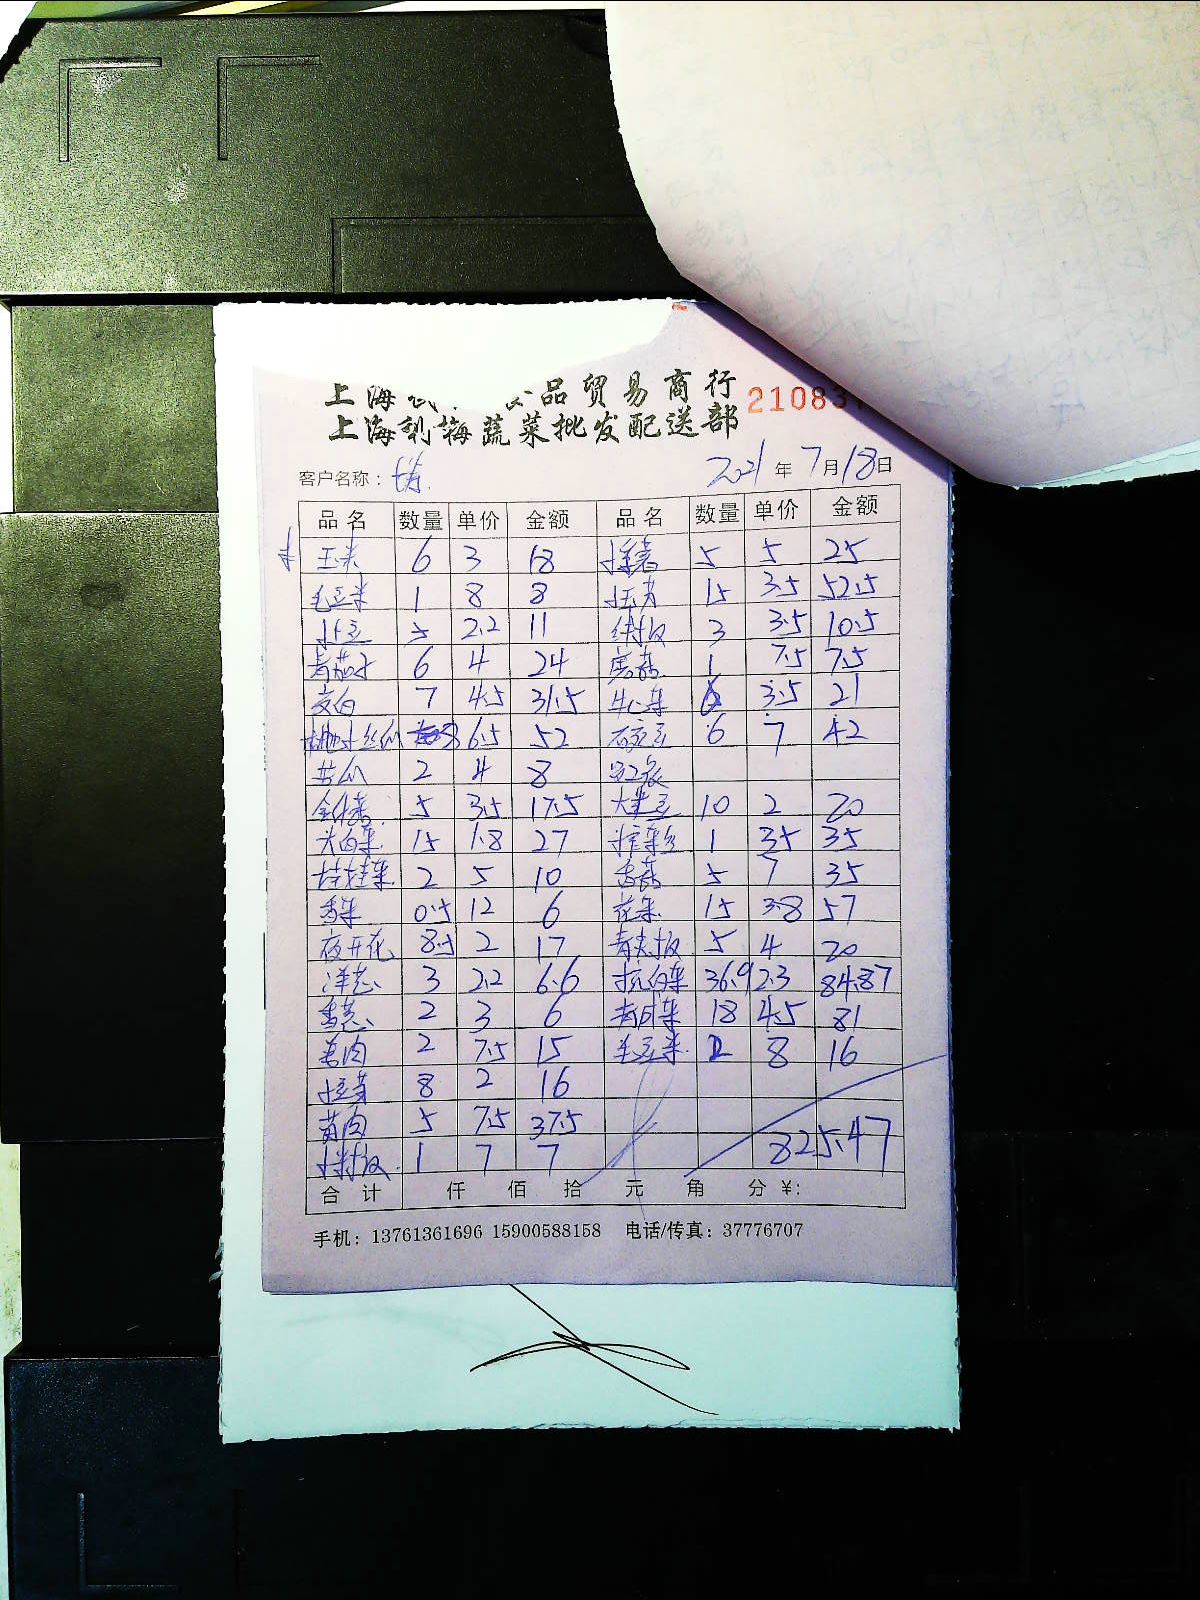 上海 品贸易商行 21083
上海 梅蔬菜批发配送部
客户名称： 2021年7月18日
品名 数量 单价 金额 品名 数量 单价 金额
玉米 6 3 18 5 5 25
毛豆米 1 8 8 15 3.5 52.5
5 2.2 11 3 3.5 10.5
青茄子 6 4 24 1 7.5 7.5
茭白 7 4.5 31.5 牛心菜 6 3.5 21
丝瓜 8 6.5 52 6 7 42
苦瓜 2 4 8
5 3.5 17.5 10 2 20
大白菜 15 1.8 27 榨菜丝 1 35 35
娃娃菜 2 5 10 香菇 5 7 35
香菜 0.5 12 6 花菜 15 3.8 57
夜开花 8.5 2 17 青尖椒 5 4 20
洋葱 3 2.2 6.6 杭白菜 36.9 2.3 84.87
香葱 2 3 6 18 4.5 81
姜肉 2 7.5 15 毛豆米 2 8 16
8 2 16
5 7.5 37.5
小米椒 1 7 7 825.47
合计 仟 佰 拾 元 角 分 ¥:
手机：13761361696 15900588158 电话/传真：37776707